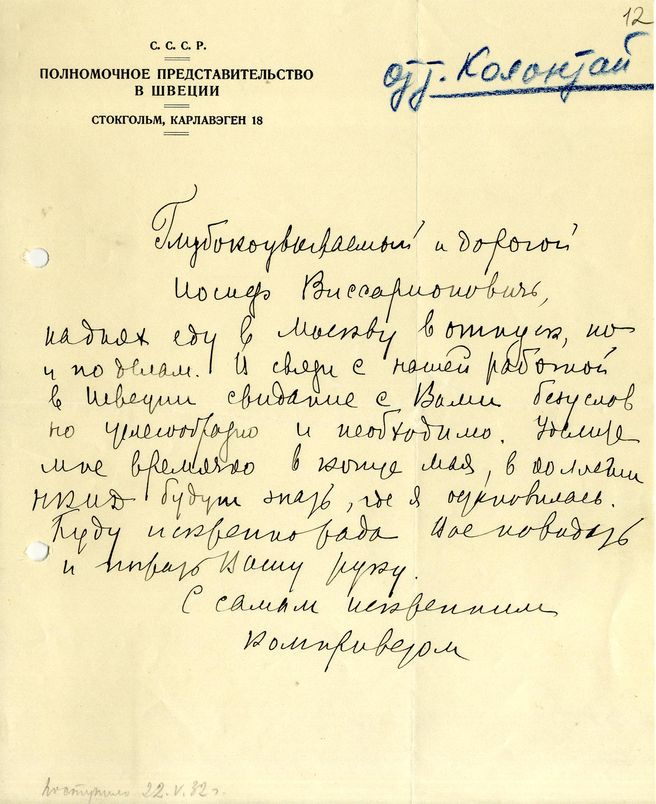 12
от т. Колонтай
С. С. С. Р.
ПОЛНОМОЧНОЕ ПРЕДСТАВИТЕЛЬСТВО
В ШВЕЦИИ
СТОКГОЛЬМ, КАРЛАВЭГЕН 18
Глубокоуважаемый и дорогой
Иосиф Виссарионович,
на днях еду в Москву в отпуск, но
и по делам. В связи с нашей работой
в Швеции свидание с Вами безуслов
но целесообразно и необходимо. Уделите
мне времячко в конце мая, в коллегии
НКИД будут знать, где я остановилась.
Буду искренно рада Вас повидать
и пожать Вашу руку.
С самым искренним
компрИветом
поступило 22.V.32 г.